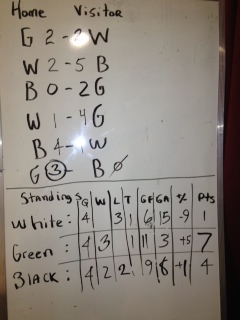 Home Visitor
G 2-2 W
W 2-5 B
B 0-2 G
W 1-4 G
B 4-1 W
G 3- B 0
Standings G W L T GF GA % Pts
White: 4 3 1 6 15 -9 1
Green: 4 3 1 11 3 +5 7
Black: 4 2 2 9 8 +1 4